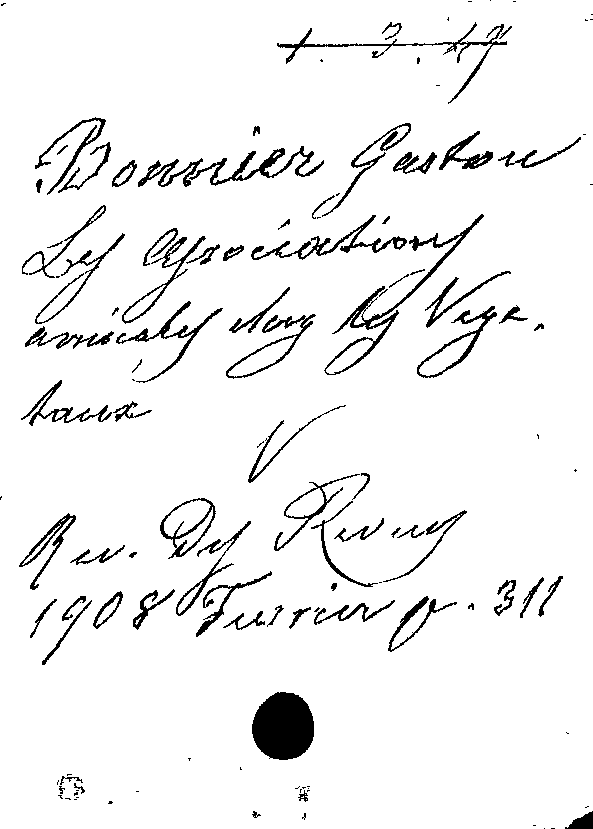 1. 3. 47
Bonnier Gaston
Les Associations
amicales dans les Vege-
taux
V
Rev. Des Revues
1908 Fevrier p. 311